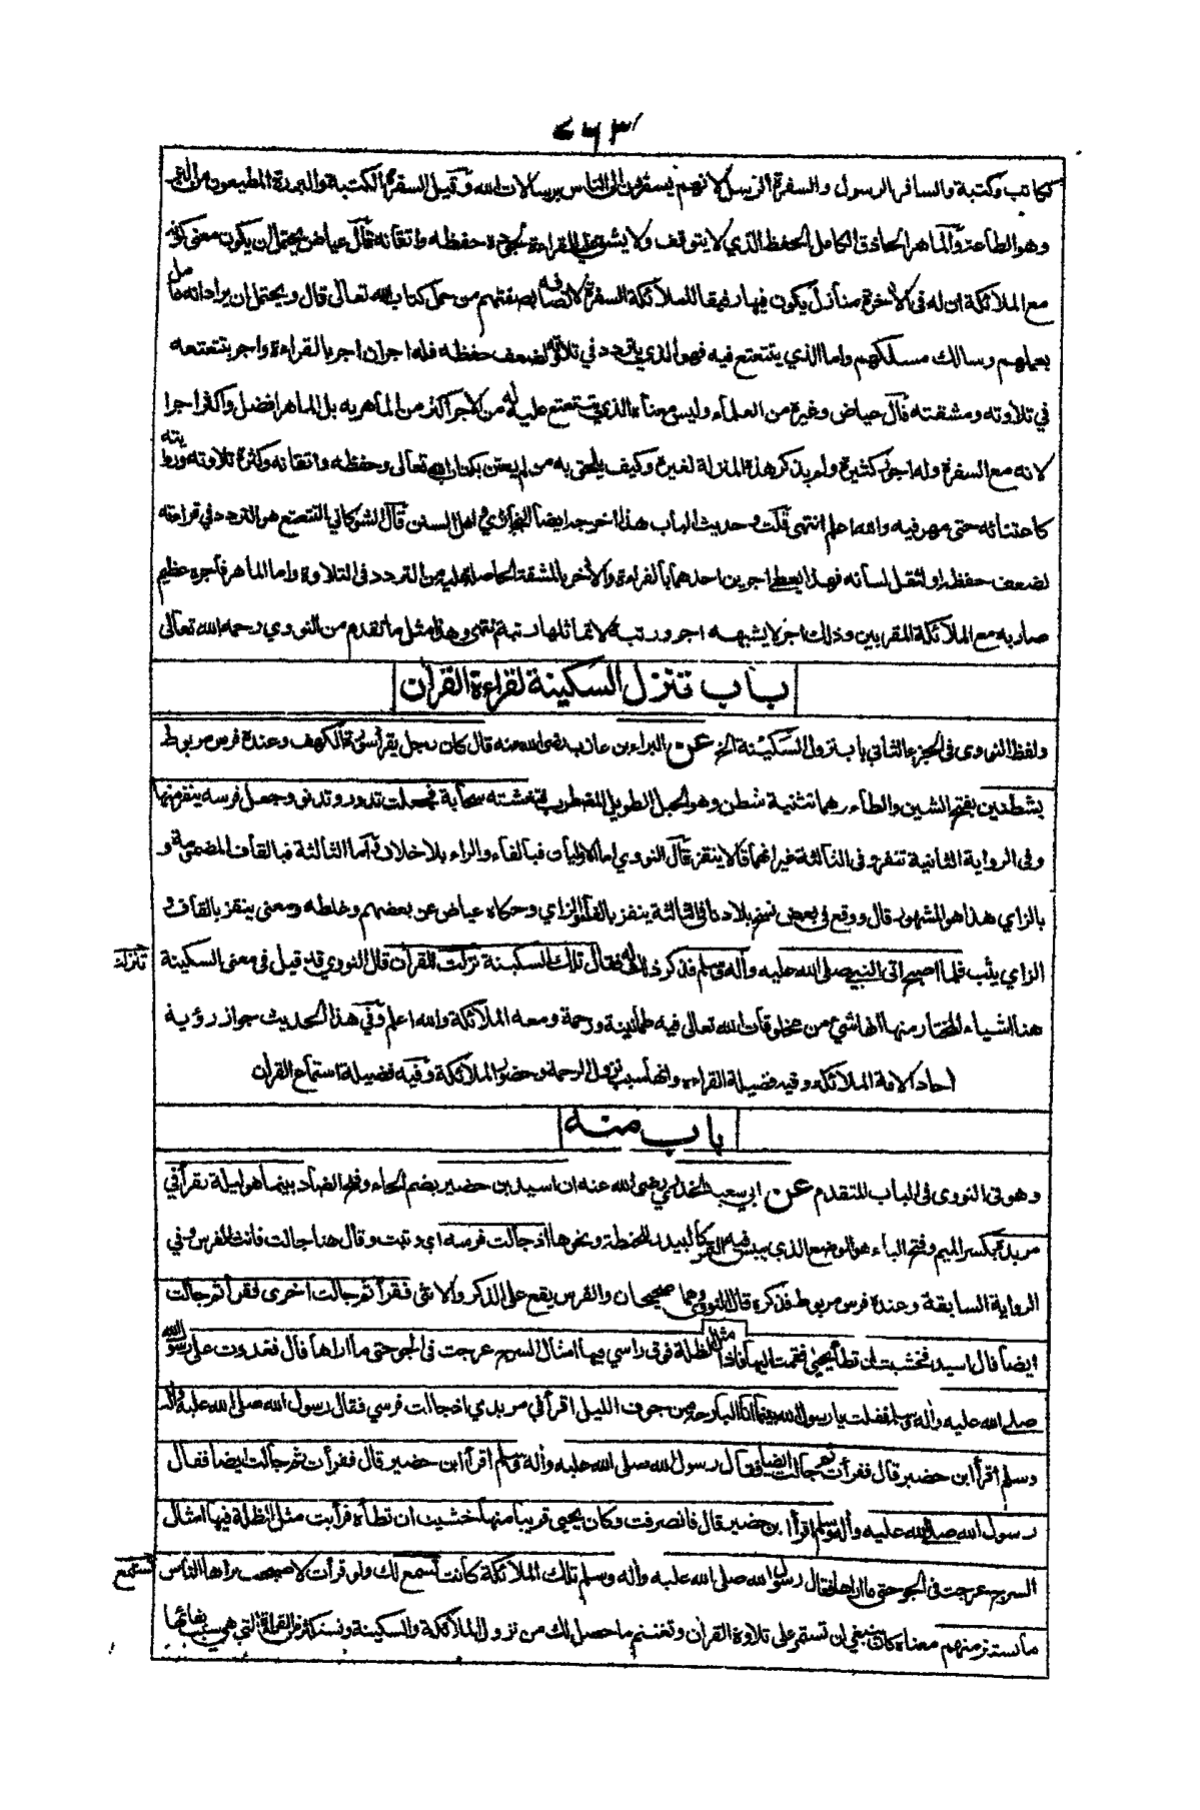 ككاتب وكتبة والسافر الرسول والسفرة الرسل لانهم يسفرون الى الناس برسالات الله وقيل السفرة الكتبة والبررة المطيعون من البر
وهو الطاعة والماهر الحاذق الكامل الحفظ الذي لا يتوقف ولا يشق عليه القراءة بجودة حفظه واتقانه قال عياض يحتمل ان يكون معنى كونه
مع الملائكة ان له في الاخرة منازل يكون فيها رفيقا للملائكة السفرة لاتصافه بصفتهم من حمل كتاب الله تعالى قال ويحتمل ان يراد انه عامل
بعملهم وسالك مسلكهم واما الذي يتتعتع فيه فهو الذي يتردد في تلاوته لضعف حفظه فله اجران اجر بالقراءة واجر بتتعتعه
في تلاوته ومشقته قال عياض وغيره من العلماء وليس معناه الذي يتتعتع عليه له من الاجر اكثر من الماهر به بل الماهر افضل واكثر اجرا
لانه مع السفرة وله اجور كثيرة ولم يذكر هذه المنزلة لغيره وكيف يلحق به من لم يعتن بكتاب الله تعالى وحفظه واتقانه وكثرة تلاوته وروايته
كاعتنائه حتى مهر فيه والله اعلم انتهى قلت وحديث الباب هذا اخرجه ايضا البخاري واهل السنن قال الشوكاني التتعتع هو التردد في قراءته
لضعف حفظه او لثقل لسانه فهذا يعطى اجرين احدهما بالقراءة والاخر بالمشقة الحاصلة عليه من التردد في التلاوة واما الماهر فاجره عظيم
صار به مع الملائكة المقربين وذلك اجر لا يشبهه اجر ورتبة لا تماثلها رتبة انتهى وهذا مثل ما تقدم من النووي رحمه الله تعالى
باب تنزل السكينة لقراءة القرآن
ولفظ النووي في الجزء الثاني باب نزول السكينة الخ عن البراء بن عازب رضي الله عنه قال كان رجل يقرأ سورة الكهف وعنده فرس مربوط
بشطنين بفتح الشين والطاء وهما تثنية شطن وهو الحبل الطويل المضطرب فتغشته سحابة فجعلت تدور وتدنو وجعل فرسه ينفر منها
وفي الرواية الثانية تنفر وفي الثالثة غير انهما قالا ينقز قال النووي اما الاوليان فبالفاء والراء بلا خلاف واما الثالثة فبالقاف المضمومة و
بالزاي هذا هو المشهور قال ووقع في بعض نسخ بلادنا في الثالثة ينفز بالفاء والزاي وحكاه عياض عن بعضهم وغلطه ومعنى ينقز بالقاف و
الزاي يثب فلما اصبح اتى النبي صلى الله عليه وآله وسلم فذكر ذلك له فقال تلك السكينة نزلت للقرآن قال النووي قد قيل في معنى السكينة
تنزلت
هنا اشياء المختار منها انها شيء من مخلوقات الله تعالى فيه طمانينة ورحمة ومعه الملائكة والله اعلم وفي هذا الحديث جواز رؤية
احاد الامة الملائكة وفيه فضيلة القراءة وانها سبب نزول الرحمة وحضور الملائكة وفيه فضيلة استماع القرآن
باب منه
وهو في النووي في الباب المتقدم عن ابي سعيد الخدري رضي الله عنه ان اسيد بن حضير بضم الحاء وفتح الضاد بينما هو ليلة يقرأ في
مربده بكسر الميم وفتح الباء هو الموضع الذي ييبس فيه التمر كالبيدر للحنطة ونحوها اذ جالت فرسه اي وثبت وقال هنا جالت فانث الفرس وفي
الرواية السابقة وعنده فرس مربوط فذكره قال النووي وهما صحيحان والفرس يقع على الذكر والانثى فقرأ ثم جالت اخرى فقرأ ثم جالت
ايضا قال اسيد فخشيت ان تطأ يحيى فقمت اليها فاذا مثل الظلة فوق راسي فيها امثال السرج عرجت في الجو حتى ما اراها قال فغدوت على رسول الله
صلى الله عليه وآله وسلم فقلت يا رسول الله بينما انا البارحة من جوف الليل اقرأ في مربدي اذ جالت فرسي فقال رسول الله صلى الله عليه وآله
وسلم اقرأ ابن حضير قال فقرأت ثم جالت ايضا فقال رسول الله صلى الله عليه وآله وسلم اقرأ ابن حضير قال فقرأت ثم جالت ايضا فقال
رسول الله صلى الله عليه وآله وسلم اقرأ ابن حضير قال فانصرفت وكان يحيى قريبا منها خشيت ان تطأه فرأيت مثل الظلة فيها امثال
السرج عرجت في الجو حتى ما اراها فقال رسول الله صلى الله عليه وآله وسلم تلك الملائكة كانت تسمع لك ولو قرأت لاصبحت يراها الناس
تستمع
ما تستتر منهم معناه كان ينبغي ان تستمر على تلاوة القرآن وتغتنم ما حصل لك من نزول الملائكة والسكينة وتستكثر من القراءة التي هي سبب بقائها